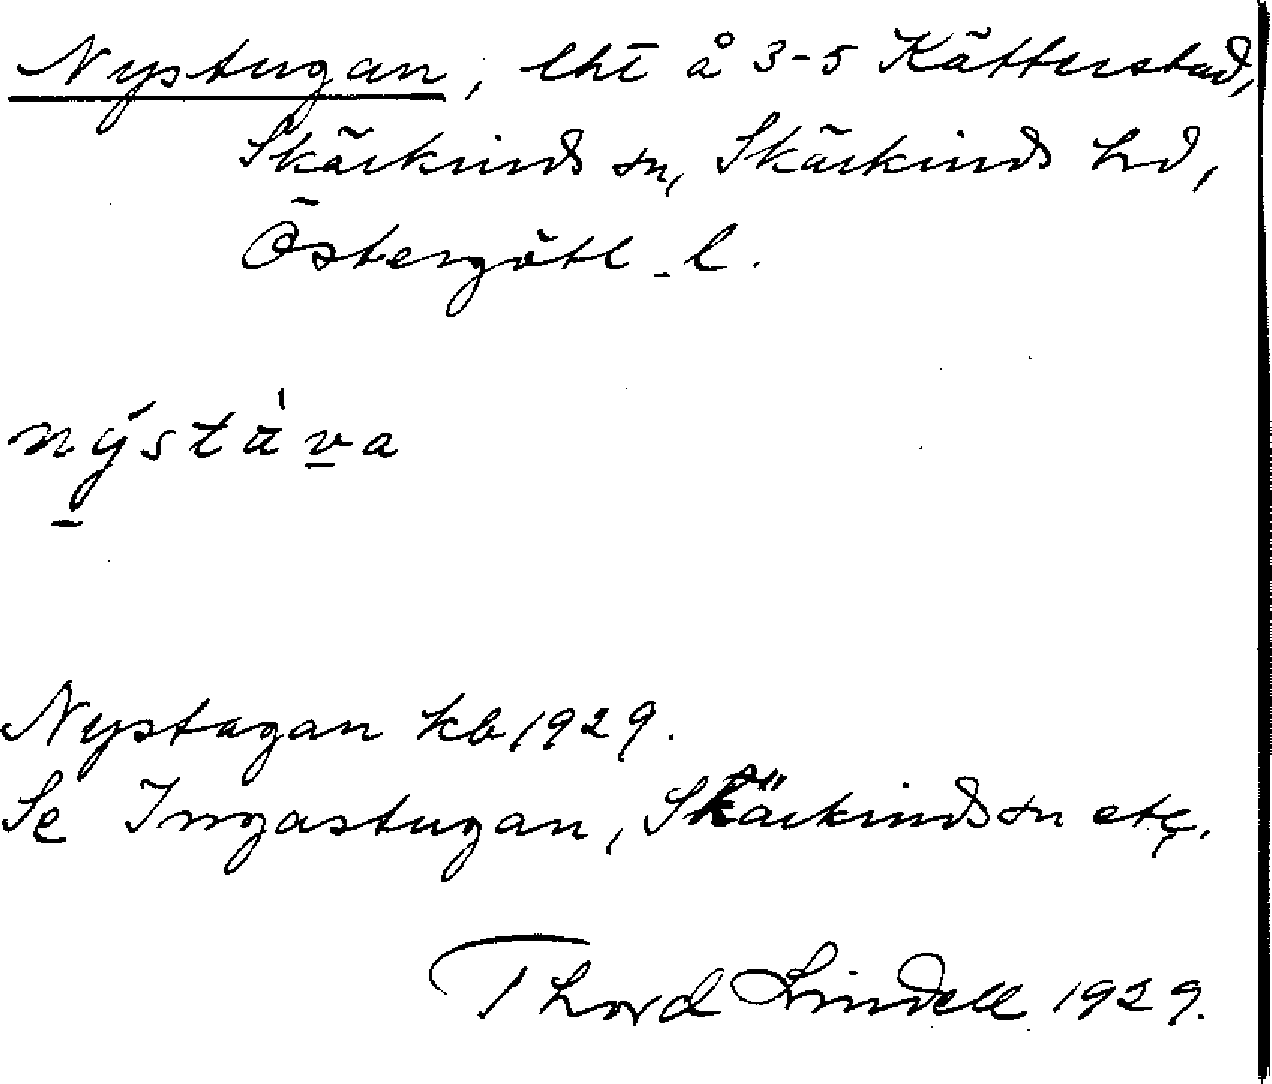 Nystugan, lht å 3-5 Kätterstad,
Skärkinds sn, Skärkinds hd,
Östergötl. l.
nýstáva
Nystugan kb 1929.
Se Ingastugan, Skärkinds sn etc.
Thord Lindell 1929.